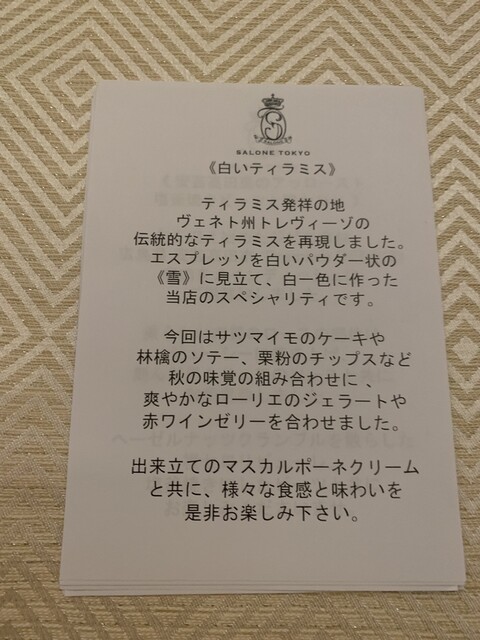 SALONE TOKYO
《白いティラミス》
ティラミス発祥の地
ヴェネト州トレヴィーゾの
伝統的なティラミスを再現しました。
エスプレッソを白いパウダー状の
《雪》に見立て、白一色に作った
当店のスペシャリティです。
今回はサツマイモのケーキや
林檎のソテー、栗粉のチップスなど
秋の味覚の組み合わせに 、
爽やかなローリエのジェラートや
赤ワインゼリーを合わせました。
出来立てのマスカルポーネクリーム
と共に、様々な食感と味わいを
是非お楽しみ下さい。